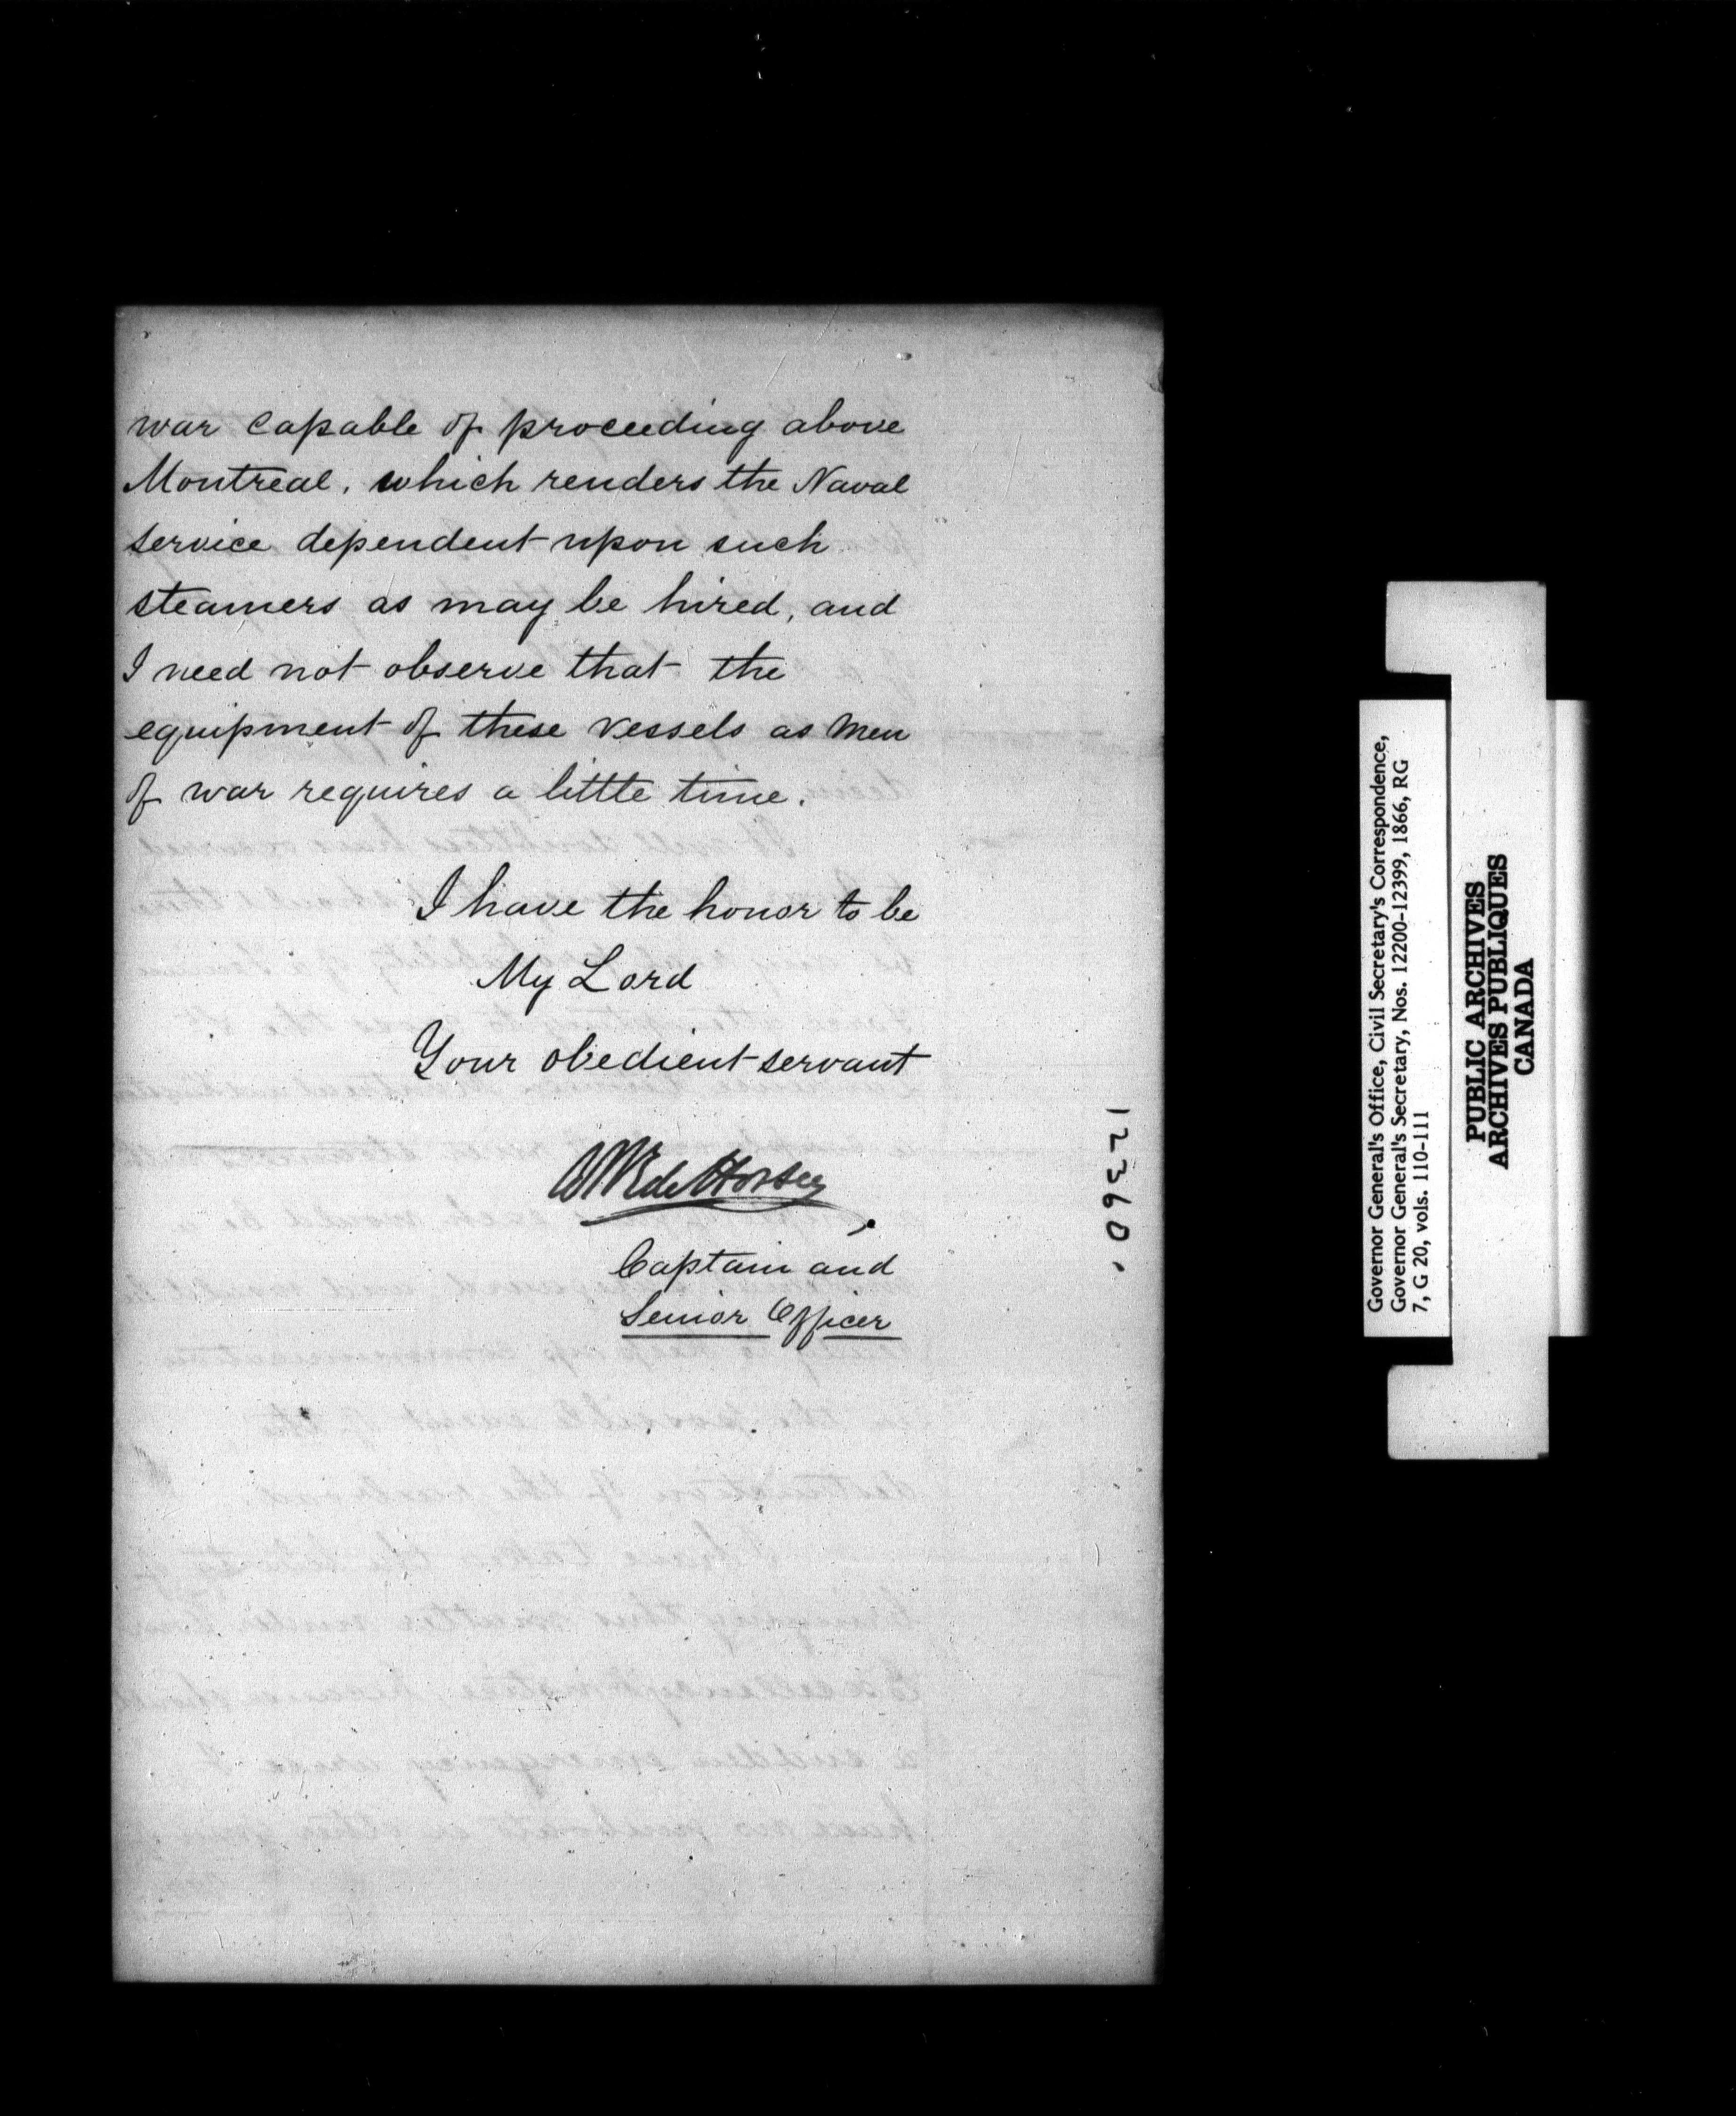 war capable of proceeding above
Montreal, which renders the Naval
service dependent upon such
steamers as may be hired, and
I need not observe that the
equipment of these vessels as Men
of war requires a little time.
I have the honor to be
My Lord
Your obedient servant
de Horsey
Captain and
Senior Officer
12360.
Governor General's Office, Civil Secretary's Correspondence,
Governor General's Secretary, Nos. 12200-12399, 1866, RG
7, G 20, vols. 110-111
PUBLIC ARCHIVES
ARCHIVES PUBLIQUES
CANADA